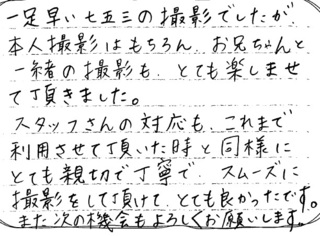 一足早い七五三の撮影でしたが
本人撮影はもちろん、お兄ちゃんと
一緒の撮影も、とても楽しませ
て頂きました。
スタッフさんの対応も、これまで
利用させて頂いた時と同様に
とても親切で丁寧で、スムーズに
撮影をして頂けて、とても良かったです。
また次の機会もよろしくお願いします。